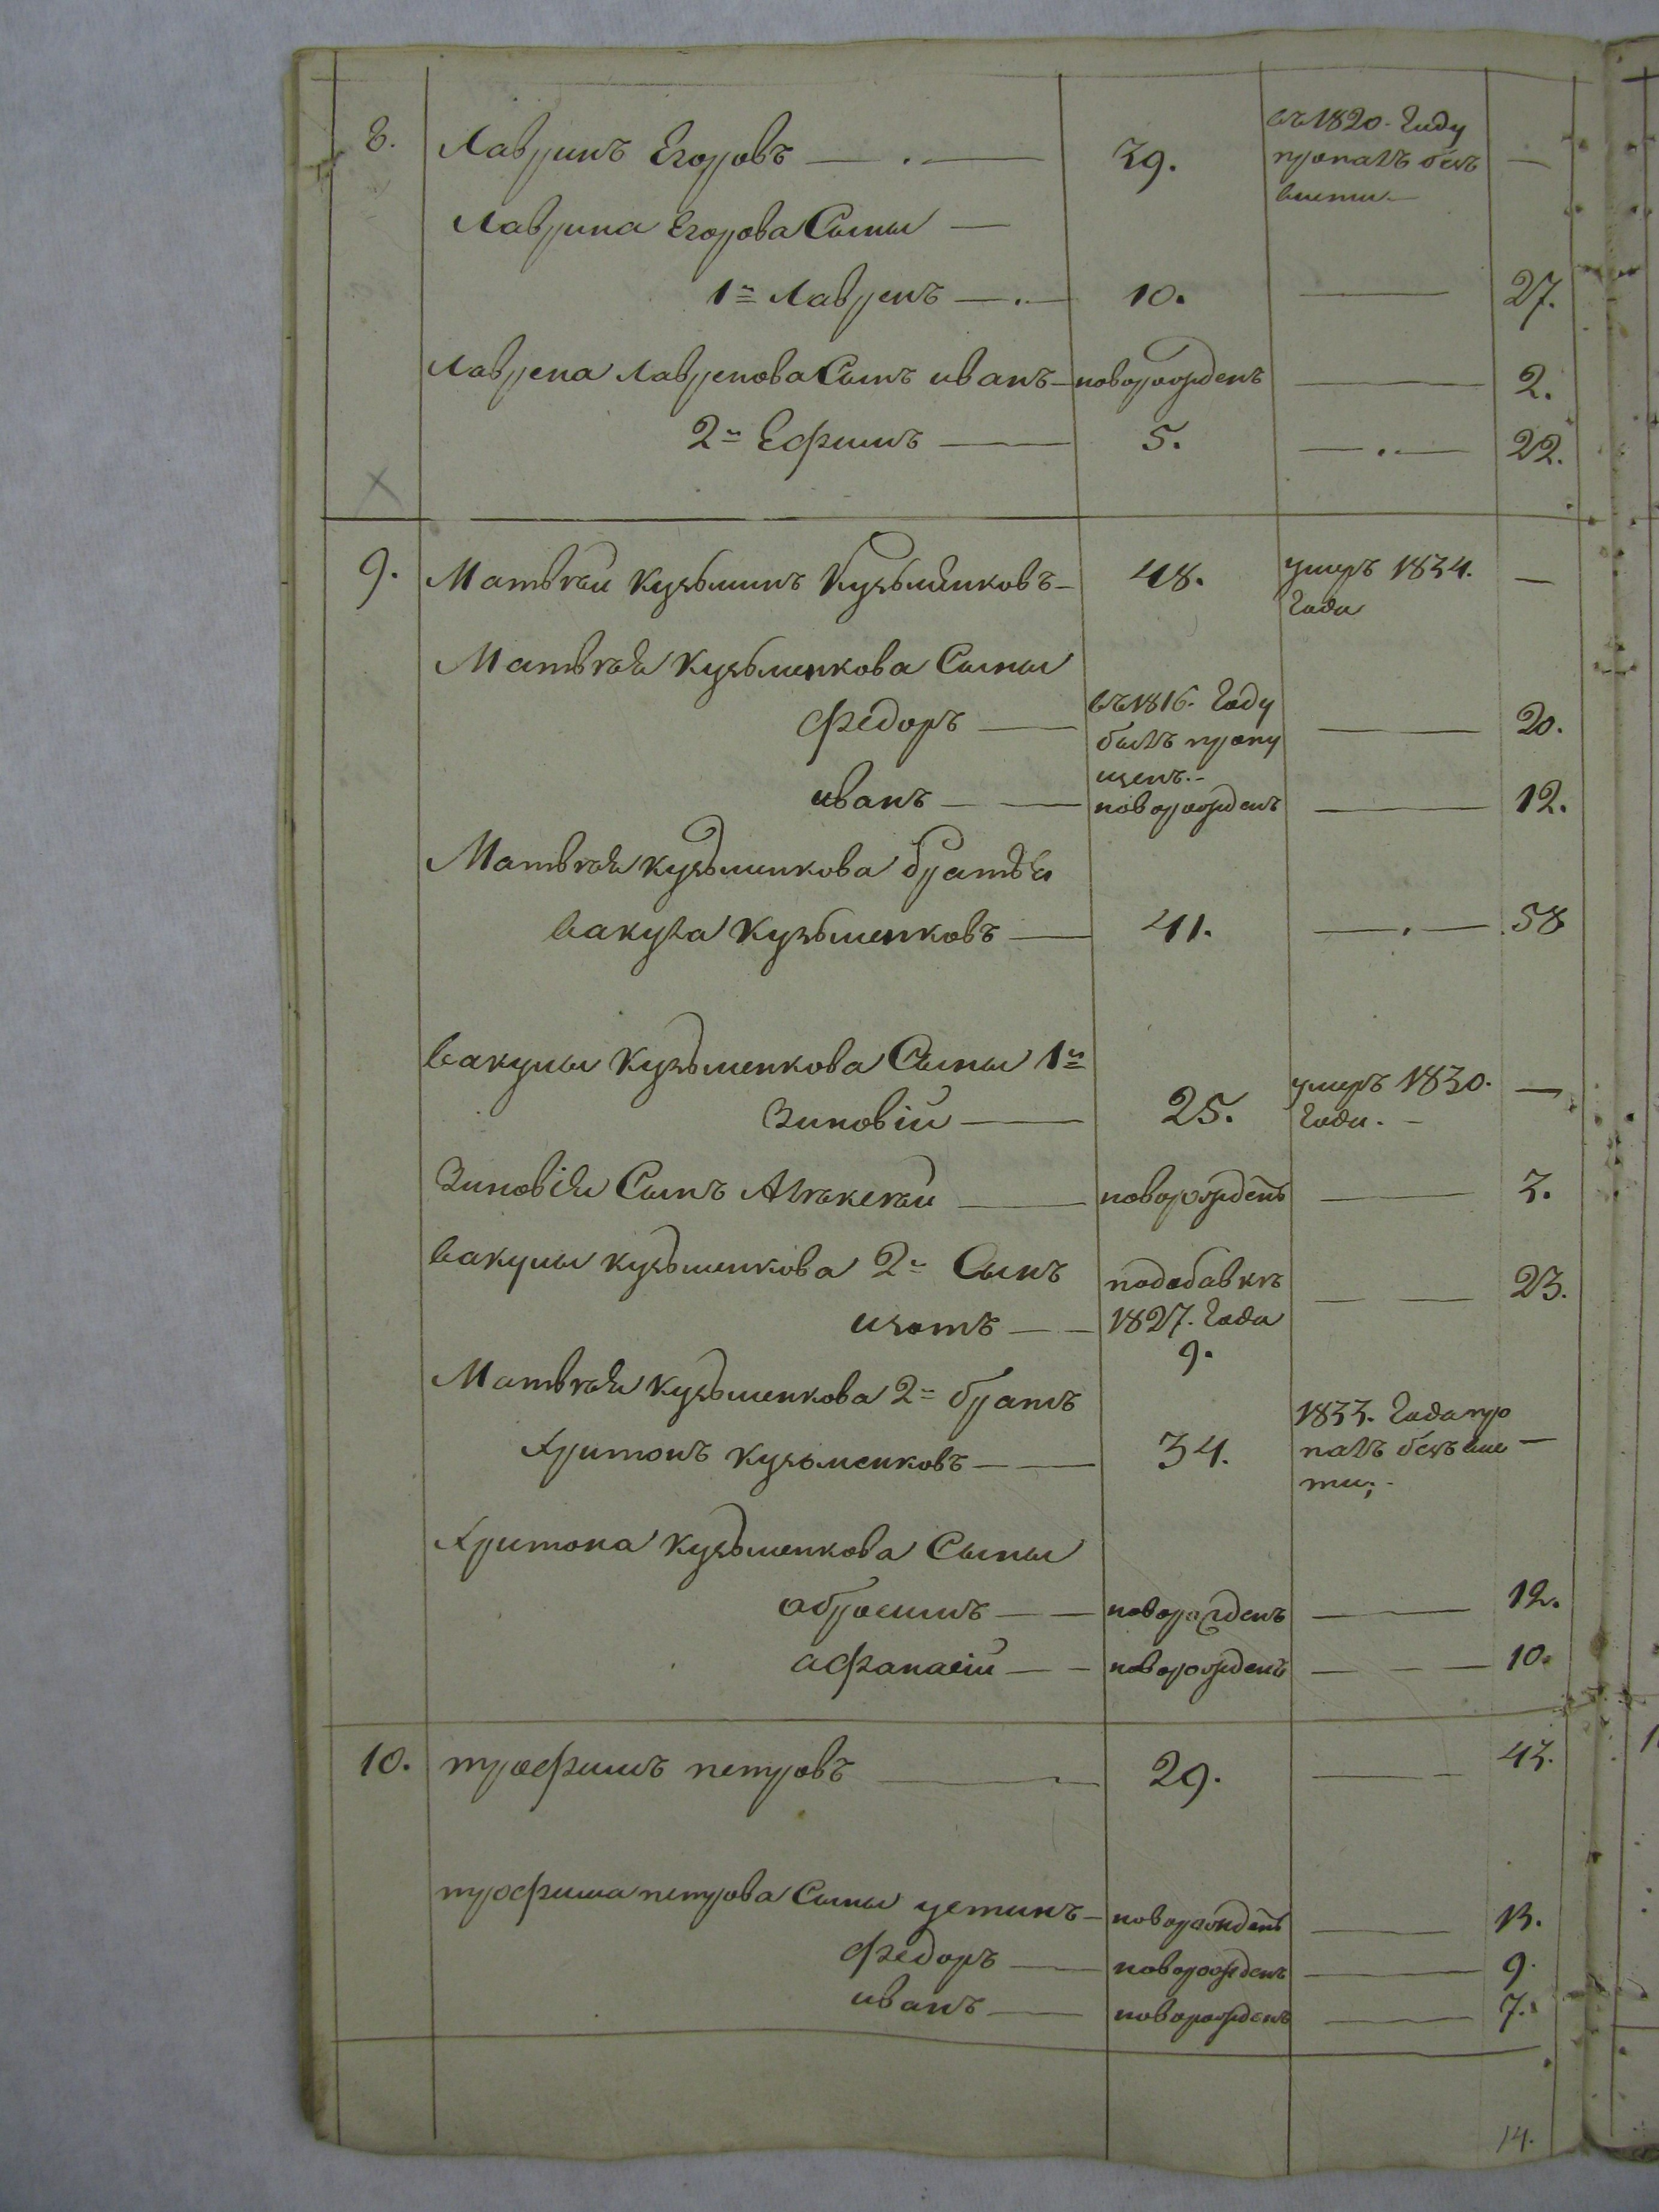 8. Лавринъ Егоровъ — . — 39. въ 1820. Году —
пропалъ безъ
вести. —
Лаврина Егорова Сыны —
1й Лавренъ — . — 10. — 27.
Лаврена Лавренова Сынъ иванъ — новорожденъ — 2.
2й Ефимъ — 5. — . — 22.
9. Матвѣй Кузьминъ Кузьминковъ — 48. умеръ 1834. —
Года
Матвѣя Кузьменкова Сыны
федоръ — въ 1816. Году — 20.
былъ пропу
щенъ. -
иванъ — новорожденъ — 12.
Матвѣя кузьминкова братья
вакула Кузьменковъ — 41. — . — 58
вакулы Кузьменкова Сыны 1й
Зиновій — 25. умеръ 1830. —
Года. -
Зиновія Сынъ Алѣксѣй — новорожденъ — 3.
вакулы кузьменкова 2й Сынъ подобавкѣ — 23.
изотъ — 1827. Года
9.
Матвѣя Кузьменкова 2й братъ
Хритонъ Кузьменковъ — 34. 1833. Года про —
палъ безъ вие
ти; -
Хритона Кузьменкова Сыны
абросимъ — новорожденъ — 12.
афанасій — новорожденъ — 10.
10. трофимъ петровъ — 29. — 43.
трофима петрова Сыны устинъ — новорожденъ — 13.
федоръ — новорожденъ — 9.
иванъ — новорожденъ — 7.
14.